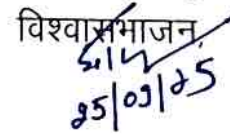 विश्वासभाजन,
25/09/25